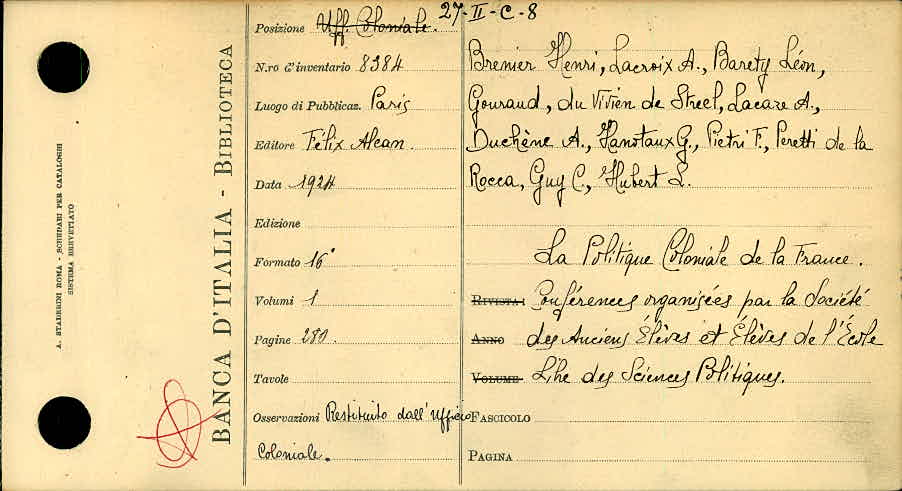 A. STADERINI ROMA - SCHEDARI PER CATALOGHI
SISTEMA BREVETTATO
BANCA D'ITALIA - BIBLIOTECA
Posizione Uff. Coloniale. 27-II-C-8
N.ro d'inventario 8384
Luogo di Pubblicaz. Paris
Editore Félix Alcan.
Data 1924
Edizione
Formato 16°
Volumi 1
Pagine 280.
Tavole
Osservazioni Restituito dall'Ufficio
Coloniale.
Brenier Henri, Lacroix A., Barety Léon,
Gouraud, du Vivien de Streel, Lacaze A.,
Duchêne A., Hanotaux G., Pietri F., Peretti de la
Rocca, Guy C., Hubert L.
La Politique Coloniale de la France.
RIVISTA: Conférences organisées par la Société
ANNO des Anciens Élèves et Élèves de l'École
VOLUME Libre des Sciences Politiques.
FASCICOLO
PAGINA